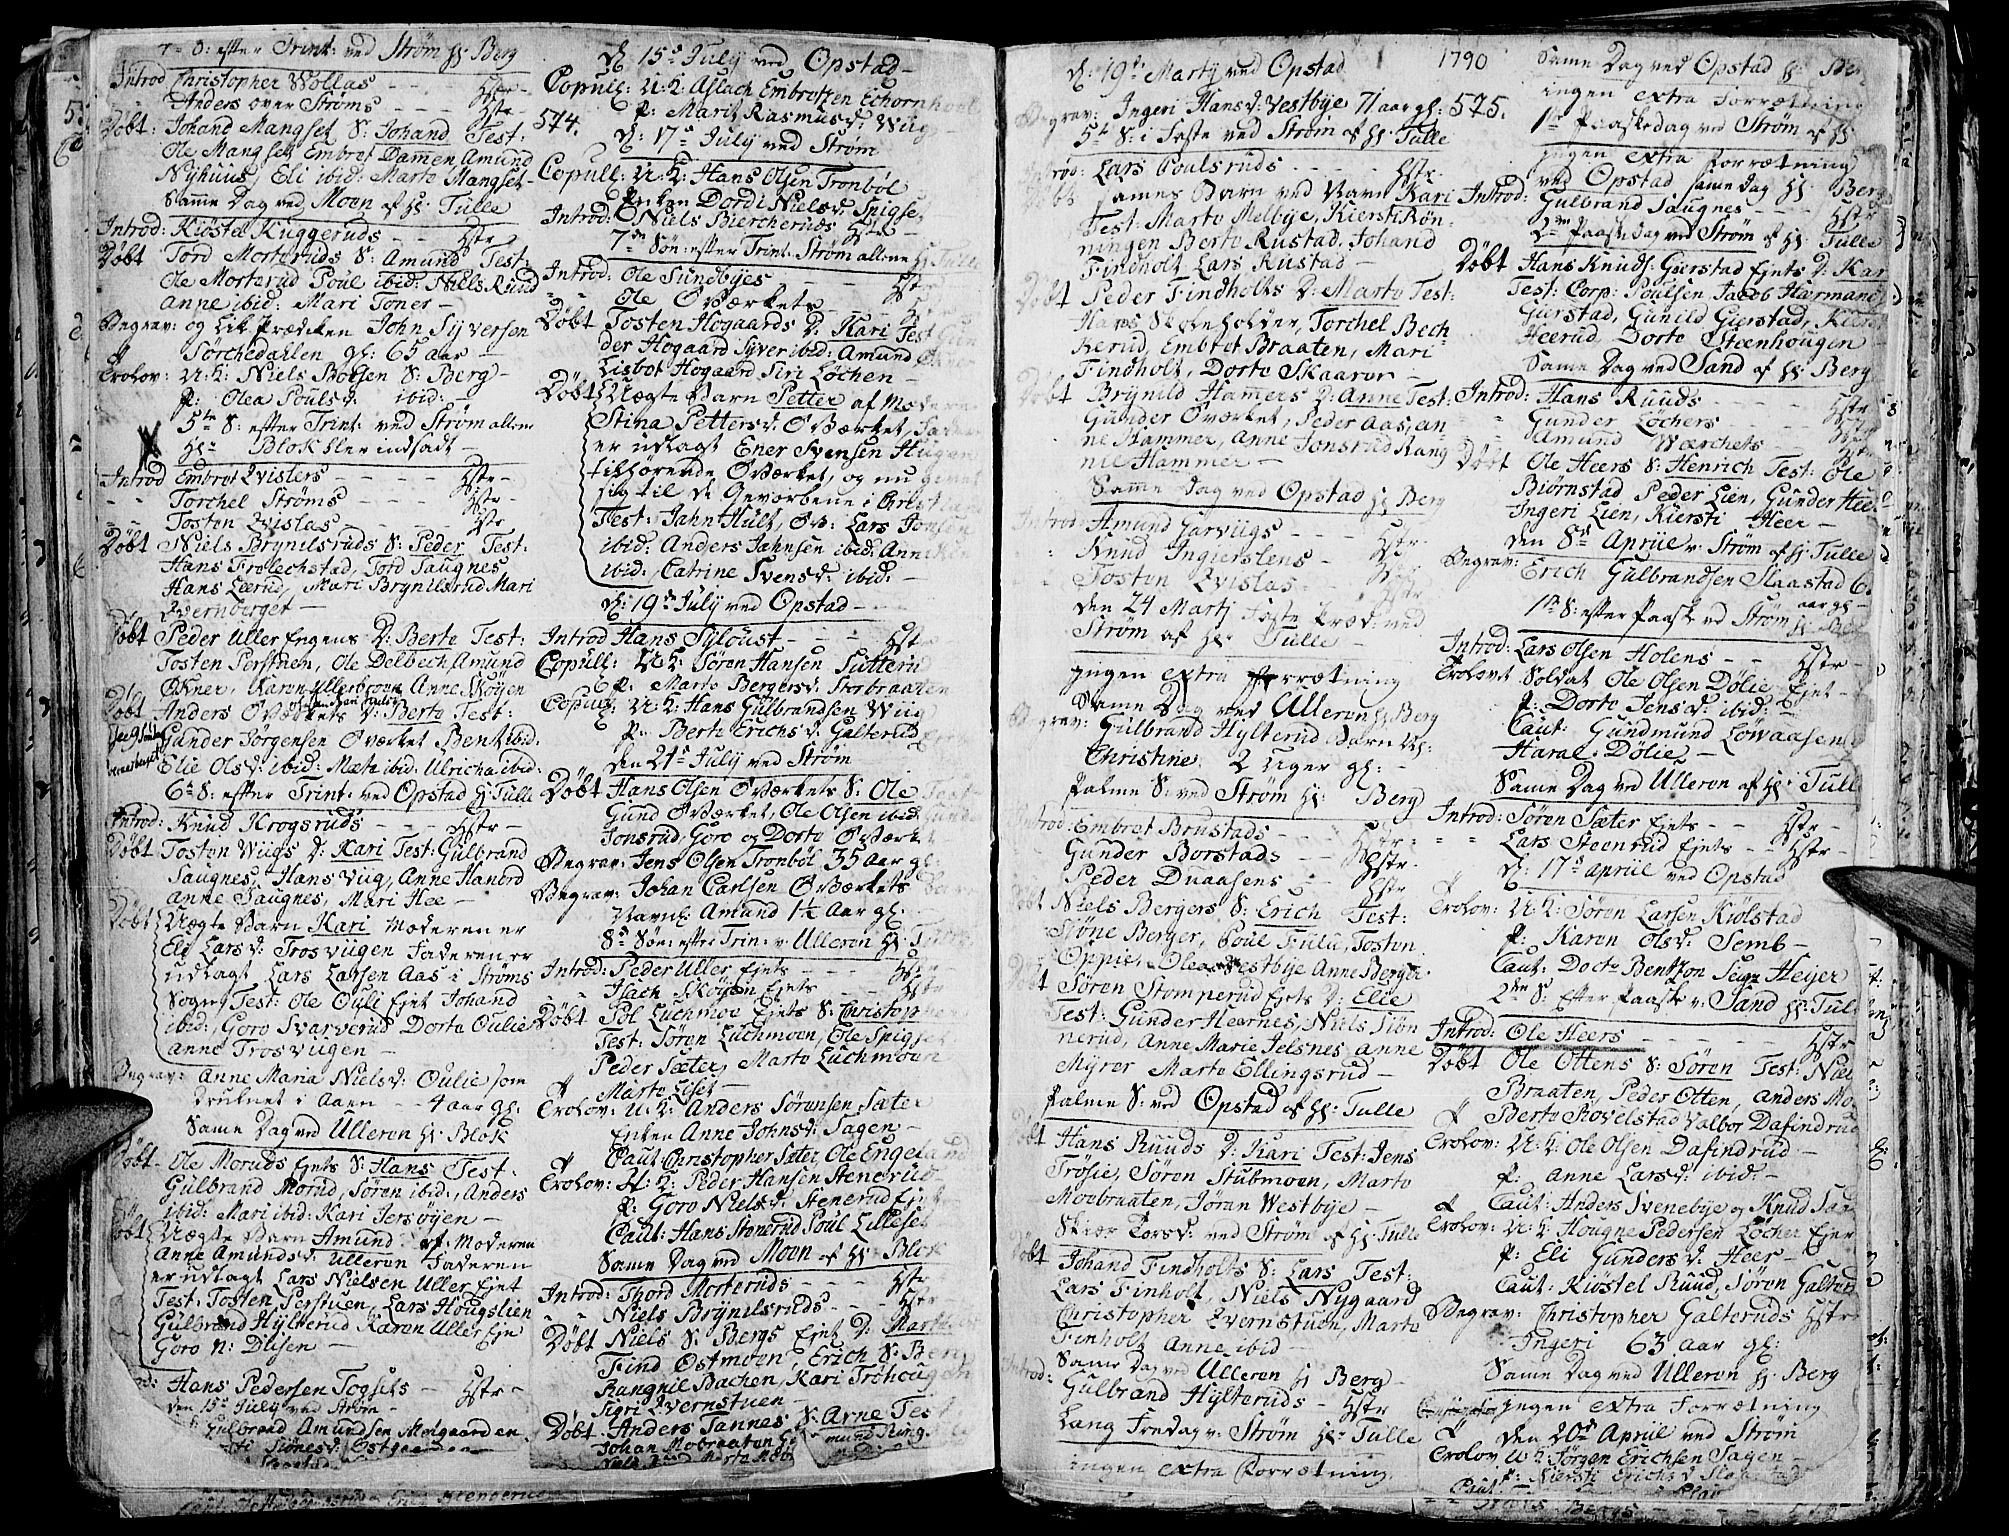 4de S: efter Trint: ved Strøm Hr Berg
Introd Christopher Wollas - - - Hstr -
Anders over Strøms - - - Hstr -
Døbt: Johand Mangset S: Johand Test:
Ole Mangset Embret Damen Amund
Nyhuus, Eli ibid: Marte Mangset
Samme Dag ved Moen af Hr Tulle
Introd: Kiøstel Kuggeruds - - Hstr -
Døbt Tord Morteruds S: Amund Test:
Ole Morterud Poul ibid: Niels Ruud
Anne ibid: Mari Toner -
Begrav: og Lik Prædiken John Syversen
Sørchedahlen gl: 65 aar -
Trolov: U: K: Niels Boesen S: Berg -
P: Olea Pouls d: ibid:
5te S: efter Trint: ved Strøm allene
Hr Blok blev indsadt -
Introd Embret Qvisters - - - Hstr -
Torchel Strøms - - - Hstr -
Tosten Qvislas - - - Hstr
Døbt Niels Brynilsruds S: Peder Test:
Hans Frolechstad, Tord Saugnes
Hans Leerud, Mari Brynilsrud Mari
Qvernberget -
Døbt Peder Uller Engens D: Berte Test:
Tosten Perstuen, Ole Delbech Amund
Økner, Karen Ullerbroen Anne Skøyen
Døbt Anders Øværkets D: Berte Test:
Gunder Jørgensen Øværket Bent ibid:
Elie Ols d: ibid: Mæte ibid: Ulricha ibid:
6te S: efter Trint: ved Opstad Hr Tulle
Introd: Knud Krogsruds - - - Hstr -
Døbt Tosten Wiigs D: Kari Test: Gulbrand
Saugnes, Hans Viig, Anne Hanerd
Anne Saugnes, Mari Hee -
Døbt Uægte Barn Kari Moderen er
Eli Lars d: Trosviigen Faderen er
udlagt Lars Larsen Aas i Strøms
Sogn, Test: Ole Ouli Ejet Johand
ibid: Goro Svarverud Dorte Oulie
Anne Trosviigen -
Begrav: Anne Maria Niels d: Oulie som
druknet i Aaen - - 4 aar gl:
Same Dag ved Ulleren Hr Blok
Døbt - Ole Moruds Ejets S: Hans Test:
Gulbrand Morud, Søren ibid:, Anders
ibid: Mari ibid: Kari Jersøyen -
Døbt Uægte Barn Amund af Moderen
Anne Amunds d: Ulleren Faderen
er udlagt Lars Nielsen Uller Ejet
Test: Tosten Perstuen, Lars Hougslien
Gulbrand Hylterud Karen Uller Eje
Goro N: Dlisen -
Hans Pedersen Togsets - Hstr -
den 15de July ved Strøm -
Gulbrand Amundsen Morgaarden
d: 15d July ved Opstad -
Copul: U: K: Aslach Embretzen Echornhool
574. P: Marit Rasmus d: Wiig
d: 17d July ved Strøm
Copull: U: K: Hans Olsen Tronbøl
Enken Dordi Niels d: Spigset
Introd: Niels Biercheruds Hstr -
7de Søn: efter Trint: Strøm allene Hr Tulle
Introd: Ole Sundbyes - - - Hstr
Ole Øværkets - - - Hstr
Døbt Tosten Hogaards D: Kari Test Gun
der Hogaard Syver ibid: Amund
Lisbet Hogaard Siri Løchen -
Døbt Uægte Barn Petter af Moderen
Stina Petters d: Øværket, Faderen
er udlagt Ener Svensen Haugen
tilhørende Øværket, og nu givet
sig til de Gevorbene i Christia
Test: Jahn Hult, Øv: Lars Jensen
ibid: Anders Jahnsen ibid: Anne
ibid: Catrine Svens d: ibid: -
d: 19de July ved Opstad -
Introd Hans Syloust - - - Hstr
Copull: U: K: Søren Hansen Sutterud
P: Marte Bergers d: Storbraaten
Copul: U: K: Hans Gulbrandsen Wiig
P: Berte Erichs d: Galterud
den 21de July ved Strøm
Døbt Hans Olsen Øværkets S: Ole Test
Gund Øværket, Ole Olsen ibid: Gunder
Jonsrud, Goro og Dorte Øværket
Begrav: Jens Olsen Tronbøl 35 Aar gl:
Begrav: Johan Carlsen Øværkets
Navnl: Amund 1¼ Aar gl:
8de Søn: efter Trin: v: Ulleren Hr Tulle
Introd: Peder Uller Ejets - - - Hstr
Hach Skøyen Ejets - - - Hstr
Døbt Pol Luchmoe Ejets S: Christopher
Test: Søren Luchmoen, Ole Spigset
Peder Sæter, Marte Luchmoen
Marte Liset -
Trolov: U: K: Anders Sørensen Sæter
Enken Anne Johns d: Sagen -
Caut: Christopher Sæter, Ole Engeland
Trolov: U: K: Peder Hansen Stenerud
P: Goro Niels d: Stenerud Ejet
Caut: Hans Stenerud Poul Lilleset
Same Dag ved Moen af Hr Blok
Introd: Thord Morteruds - - - Hstr
Niels Brynilsruds - - - Hstr
Døbt Niels S: Bergs Ejet D: Marthe
Find Østmoen, Erich S: Berg
Rangnil Bachen, Kari Trøhougen
Sigri Qvernstuen -
Døbt: Anders Tannes S: Arne Test
Johan Mobraaten
d: 19de Martij ved Opstad 1790
Begrav: Ingeri Hans d: Vestbye 71 aar gl: 575.
5te S: i Faste ved Strøm af Hr Tulle
Introd: Lars Poulsruds - - - Hstr -
Døbt Sames Barn ved Navn Kari
Test: Marte Melbye, Kiersti Røn-
ningen Berte Rustad, Johand
Findholt Lars Rustad -
Døbt Peder Findholts D: Marte Test:
Hans Skoleholder, Torchel Bech-
kerud, Embret Braaten, Mari
Findholt, Dorte Skaarer -
Døbt Brynild Hammers D: Anne Test:
Gunder Øværket, Peder Aas, An-
ne Hammer, Anne Jonsrud Rang
nil Hammer -
Samme Dag ved Opstad Hr Berg
Introd: Amund Jarviigs - - - Hstr -
Knud Ingierslens - - Hstr -
Tosten Qvislas - - Hstr
den 24 Martij Faste Præd: ved
Strøm af Hr Tulle -
Ingen extra forrætning
Same Dag ved Ulleren Hr Berg
Begrav: Gulbrand Hylterud Barn Nl:
Christine 2 uger gl: -
Palme S: ved Strøm Hr Berg
Introd: Embret Brustads - - Hstr -
Gunder Borstads - - Hstr -
Peder Duaasens - - Hstr
Døbt Niels Bergers S: Erich Test:
Støne Berger, Poul Fulu, Tosten
Oppie, Olea Vestbye Anne Berger
Døbt Søren Stomperud Ejets D: Elie
Test: Gunder Heernes, Niels Siøn
nerud, Anne Marie Jelsnes Anne
Myrer Marte Ellingsrud -
Palme S: ved Opstad af Hr: Tulle
Døbt Hans Ruuds D: Kari Test: Jens
Trøsie, Søren Stubmoen, Marte
Moebraaten, Jøran Westbye -
Skiær Torsd: ved Strøm af Hr: Tulle
Døbt Johand Findholts S: Lars Test:
Lars Finholt, Niels Nygaard
Christopher Qvernstuen, Marte
Finholt Anne ibid -
Same Dag ved Ulleren Hr Berg -
Introd: Gulbrand Hylteruds - Hstr
Lang Fredag v: Strøm Hr Tulle
ingen extra Forrætning.
Same Dag ved Opstad Hr Ber
ingen extra Forrætning
1te Paaskedag ved Strøm af Hr
Jngen extra forrætning
ved Opstad same dag Hr Berg
Introd: Gulbrand Saugnes - - - Hstr
2den Paaskedag ved Strøm af Hr Tulle
Døbt Hans Knuds: Gierstad Ejets D: Kari
Test: Corp: Poulsen Jacob Harmand
Gierstad, Gunild Gierstad, Kiersti
Heerud, Dorte Steenhougen -
Same Dag ved Sand af Hr Berg
Introd: Hans Ruuds - - - Hstr
Gunder Løchers - - Hstr
Amund Værchets - - Hstr
Døbt Ole Heers S: Henrich Test: Ole
Biørnstad Peder Lien, Gunder Heer
Ingeri Lien, Kiersti Heer -
den 8de April v: Strøm af Hr Tulle
Begrav: Erich Gulbrandsen Slaastad 6
aar gl -
1te S: efter Paaske ved Strøm Hr Blok
Introd: Lars Olsen Holens - - Hstr -
Trolovet Soldat Ole Olsen Dølie Ejet -
P: Dorte Jens d: ibid: -
Caut: Gundmund Lowaasen
Haral Dølie -
Same Dag ved Ulleren af Hr Tull
Introd: Søren Sæter Ejets - - Hstr -
Lars Steenrud Ejets - - Hstr -
d: 17d April ved Opstad
Trolov: U: K: Søren Larsen Kiølstad
P: Karen Ols d: Semb -
Caut: Docte Bentzon Seigr Heyer
2den S: Efter Paaske v: Sand Hr: Tul
Introd: Ole Heers - - - Hstr
Døbt Ole Ottens S: Søren Test: Niel
Braaten, Peder Otten, Anders Mo
Berte Bovelstad Valbor Dafindrud
Trolov: U: K: Ole Olsen Dafindrud -
P: Anne Lars d: ibid: -
Caut: Anders Svenebye og Knud San
Trolov: U: K: Hougne Pedersen Løcher Ejer
P: Eli Gunders d: Heer -
Caut: Kiøstel Ruud, Søren Galterud
Begrav: Christopher Galteruds Hstr
Ingeri 63 aar gl:
Same Dag ved Ulleren Hr Berg
Jngen extra Forrætning
den 20de April ved Strøm
Trolov U: K: Jørgen Erichsen Sagen -
P: Kiersti Erichs d